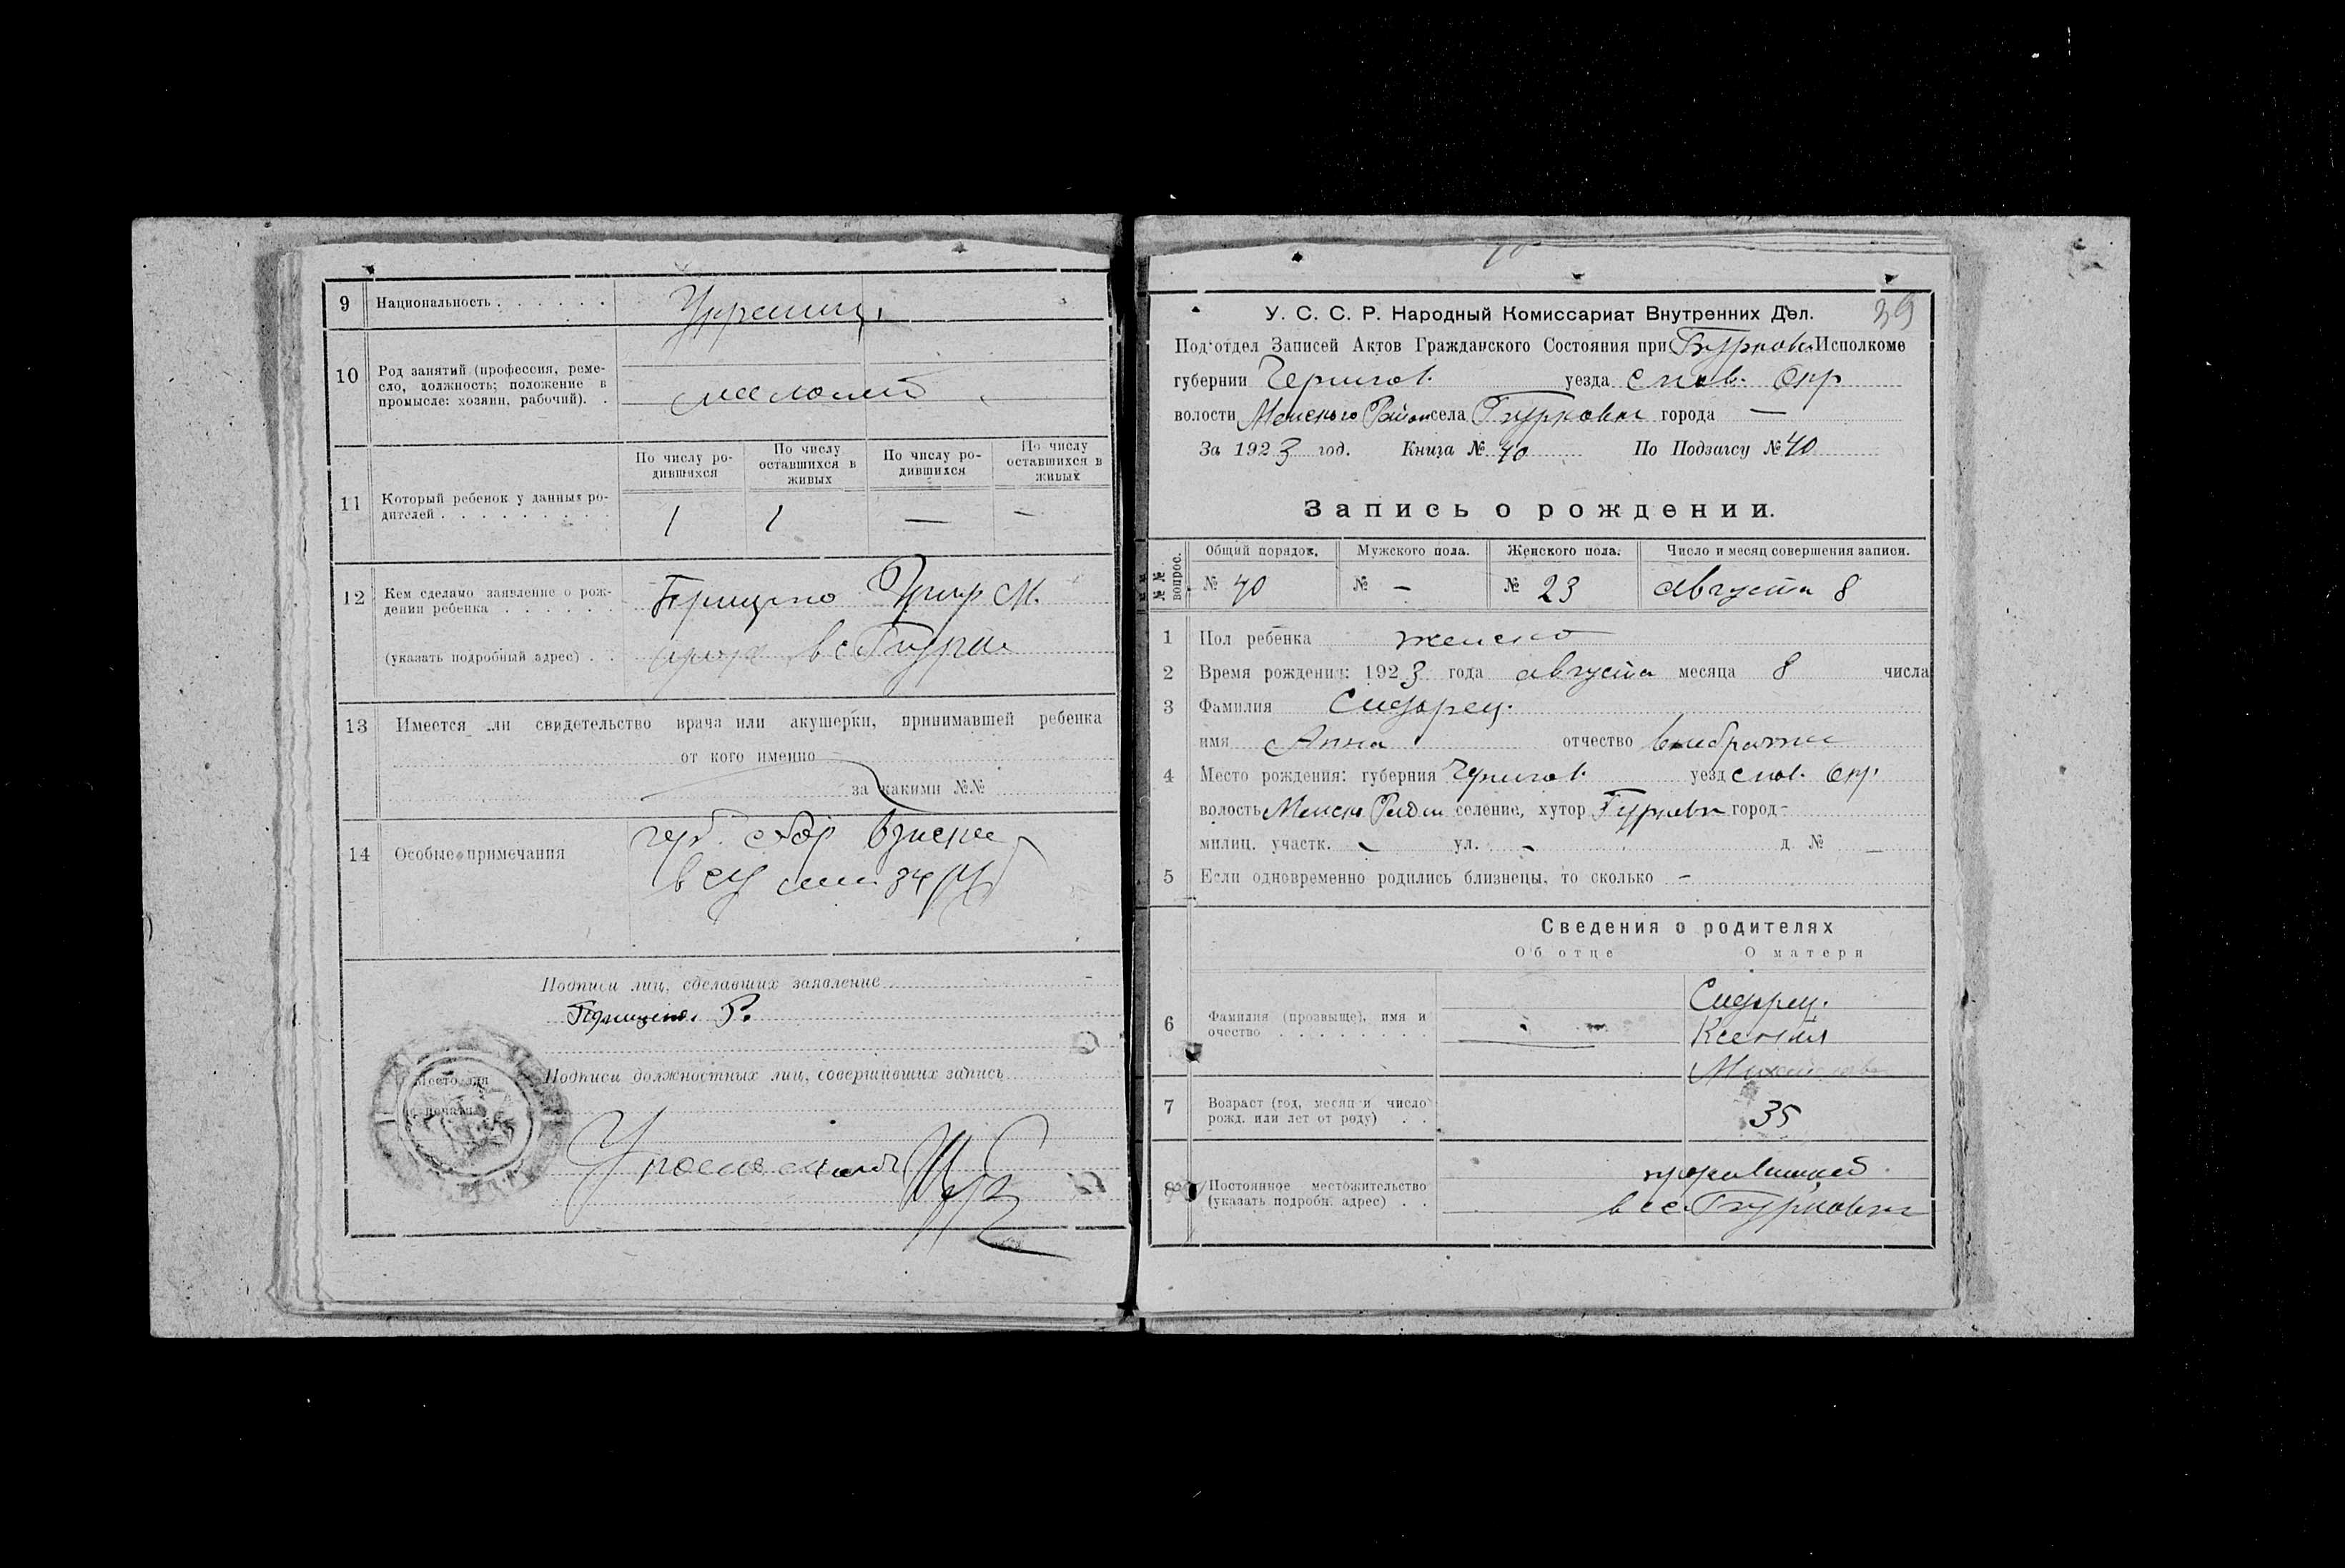 9 Национальность . . . . . . Украинц.
10 Род занятий (профессия, реме-
сло, должность; положение в
промысле: хозяин, рабочий). .
По числу ро-
дившихся
По числу
оставшихся в
живых
По числу ро-
дившихся
По числу
оставшихся в
живых
11 Который ребенок у данных ро-
дителей . . . . . . . . . 1 1 — —
12 Кем сделано заявление о рож-
дении ребенка . . . . . . Грищенко М.
(указать подробный адрес) . .
13 Имеется ли свидетельство врача или акушерки, принимавшей ребенка
от кого именно
за какими №№
14 Особые примечания
герб. сбор
Подписи лиц, сделавших заявление
Место для
печати
Подписи должностных лиц, совершивших запись
39
У. С. С. Р. Народный Комиссариат Внутренних Дел.
Под‘отдел Записей Актов Гражданского Состояния при Бурковс. Исполкоме
губернии Чернигов. уезда Снов. Окр
волости Менского Район села Бурковки города —
За 1923 год. Книга № 40 По Подзагсу № 40
Запись о рождении.
№ № вопрос.
Общий порядок. Мужского пола. Женского пола. Число и месяц совершения записи.
№ 40 № - № 23 августа 8
1 Пол ребенка женско
2 Время рождения: 1923 года августа месяца 8 числа
3 Фамилия Сидорец.
имя Анна отчество внебрачне
4 Место рождения: губерния Чернигов. уезд Снов. Окр.
волость Менско Район селение, хутор Бурковка город -
милиц. участк. - ул. - д № —
5 Если одновременно родились близнецы, то сколько -
Сведения о родителях
Об отце О матери
Сидорец.
6 Фамилия (прозвыще), имя и
очество . . . . . . . . — Ксения
7 Возраст (год, месяц и число
рожд. или лет от роду) . . 35
8 Постоянное местожительство
(указать подробн. адрес) . .
в с. Бурковки